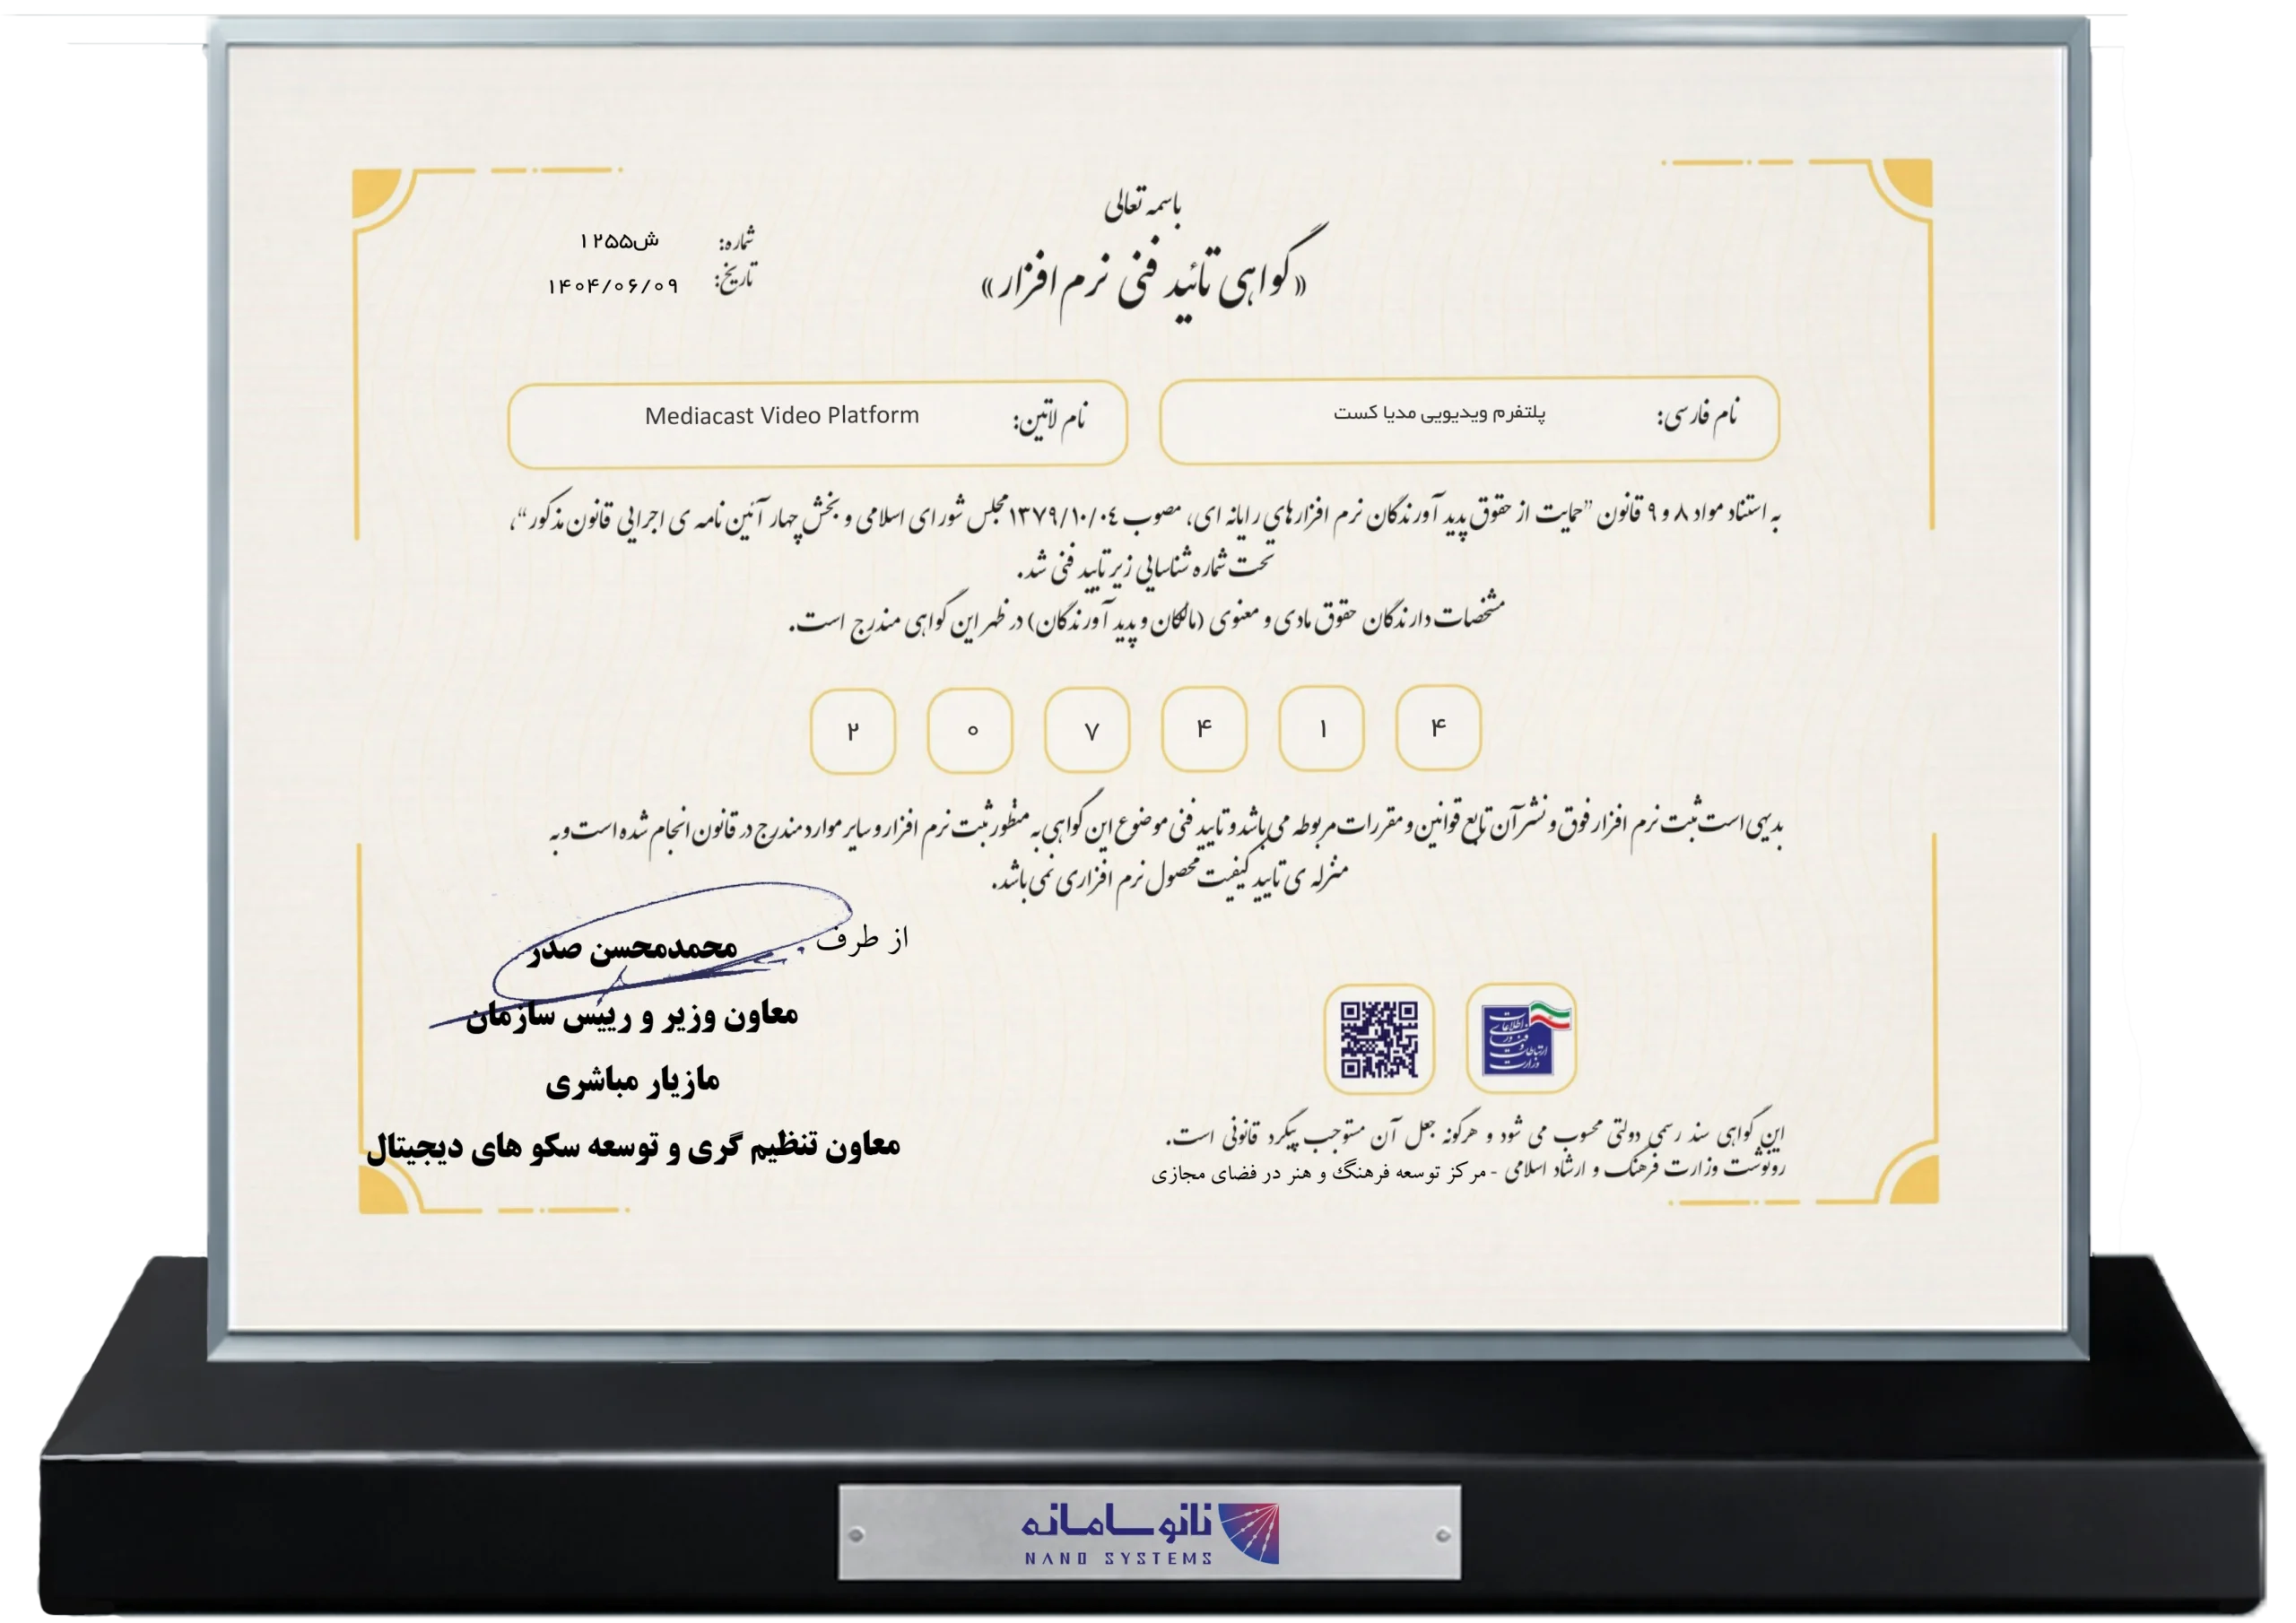 باسمه تعالی
«گواهی تائید فنی نرم افزار»
شماره: ش۱۲۵۵
تاریخ: ۱۴۰۴/۰۶/۰۹
نام فارسی: پلتفرم ویدیویی مدیا کست
نام لاتین: Mediacast Video Platform
به استناد مواد ۸ و ۹ قانون ”حمایت از حقوق پدید آورندگان نرم افزارهای رایانه ای، مصوب ۱۳۷۹/۱۰/۰٤ مجلس شورای اسلامی و بخش چهار آئین نامه ی اجرایی قانون مذکور“،
تحت شماره شناسایی زیر تایید فنی شد.
مشخصات دارندگان حقوق مادی و معنوی (مالکان و پدید آورندگان) در ظهر این گواهی مندرج است.
۲ ۰ ۷ ۴ ۱ ۴
بدیهی است ثبت نرم افزار فوق و نشر آن تابع قوانین و مقررات مربوطه می باشد و تایید فنی موضوع این گواهی به منظور ثبت نرم افزار و سایر موارد مندرج در قانون انجام شده است و به
منزله ی تایید کیفیت محصول نرم افزاری نمی باشد.
از طرف
محمدمحسن صدر
معاون وزیر و رییس سازمان
مازیار مباشری
معاون تنظیم گری و توسعه سکو های دیجیتال
وزارت ارتباطات و فناوری اطلاعات
این گواهی سند رسمی دولتی محسوب می شود و هرگونه جعل آن مستوجب پیگرد قانونی است.
رونوشت وزارت فرهنگ و ارشاد اسلامی - مرکز توسعه فرهنگ و هنر در فضای مجازی
نانو سامانه
NANO SYSTEMS